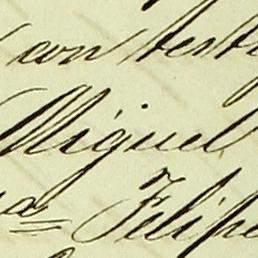 con testi
Miguel
a= Felipe